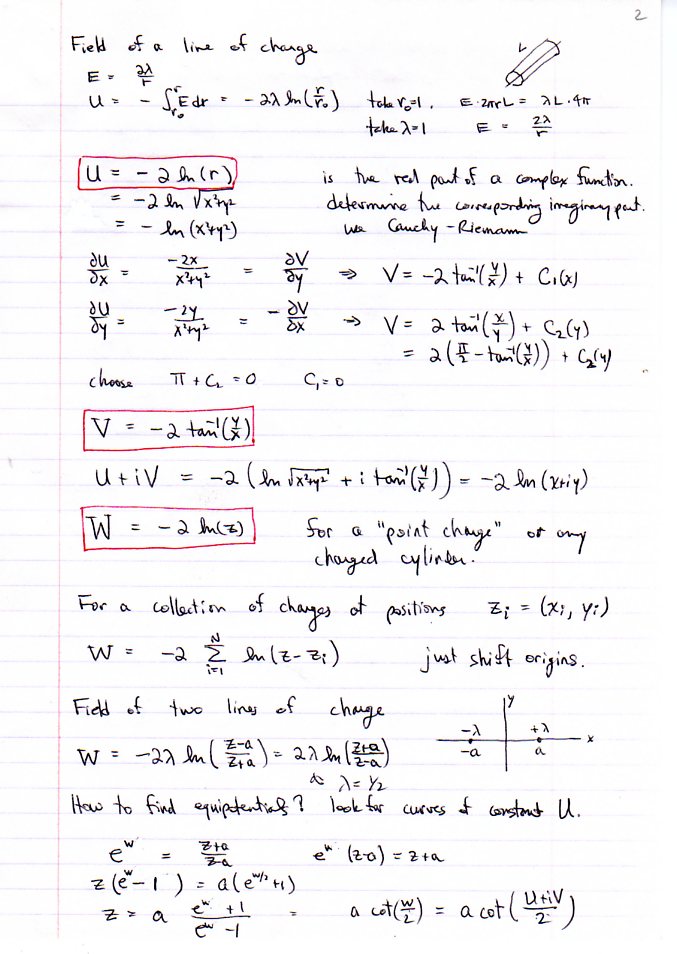 2
Field of a line of charge
L
E = 2λ/r
U = - ∫_{r₀}^{r} E dr = - 2λ ln(r/r₀) take r₀=1, E·2πrL = λL·4π
take λ=1 E = 2λ/r
U = - 2 ln(r) is the real part of a complex function.
= -2 ln √x²+y² determine the corresponding imaginary part.
= - ln (x²+y²) use Cauchy-Riemann
∂U/∂x = -2x/x²+y² = ∂V/∂y ⇒ V = -2 tan⁻¹(y/x) + C₁(x)
∂U/∂y = -2y/x²+y² = -∂V/∂x ⇒ V = 2 tan⁻¹(x/y) + C₂(y)
= 2(π/2 - tan⁻¹(y/x)) + C₂(y)
choose π + C₂ = 0 C₁ = 0
V = -2 tan⁻¹(y/x)
U + iV = -2 (ln √x²+y² + i tan⁻¹(y/x)) = -2 ln (x+iy)
W = - 2 ln(z) for a "point charge" or any
charged cylinder.
For a collection of charges at positions zᵢ = (xᵢ, yᵢ)
W = -2 ∑_{i=1}^{N} ln (z - zᵢ) just shift origins.
Field of two lines of charge
y
-λ +λ x
-a a
W = -2λ ln(z-a/z+a) = 2λ ln(z+a/z-a)
λ = 1/2
How to find equipotentials? look for curves of constant U.
e^w = z+a/z-a e^w (z-a) = z+a
z(e^w - 1) = a(e^{w/2} + 1)
z = a e^w + 1/e^w - 1 = a cot(w/2) = a cot(U+iV/2)